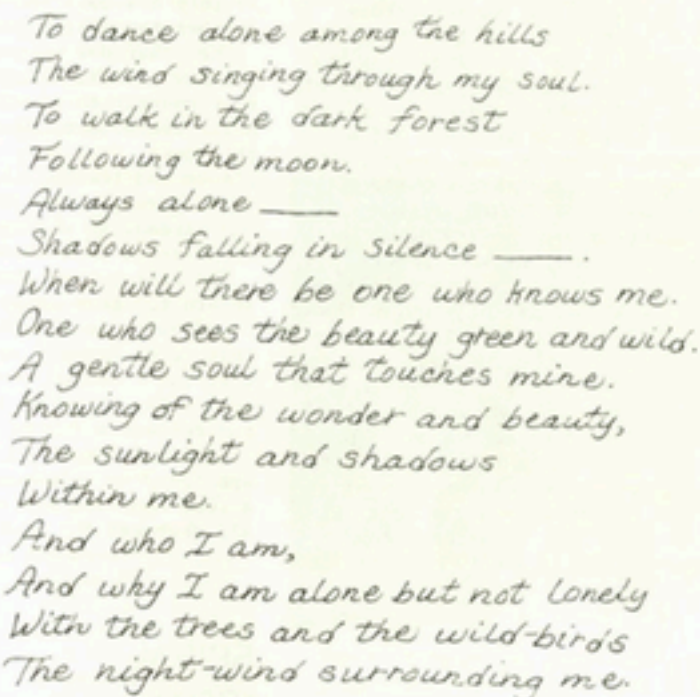 To dance alone among the hills
The wind singing through my soul.
To walk in the dark forest
Following the moon.
Always alone ____
Shadows falling in silence ____.
When will there be one who knows me.
One who sees the beauty green and wild.
A gentle soul that touches mine.
Knowing of the wonder and beauty,
The sunlight and shadows
Within me.
And who I am,
And why I am alone but not lonely
With the trees and the wild-birds
The night-wind surrounding me.